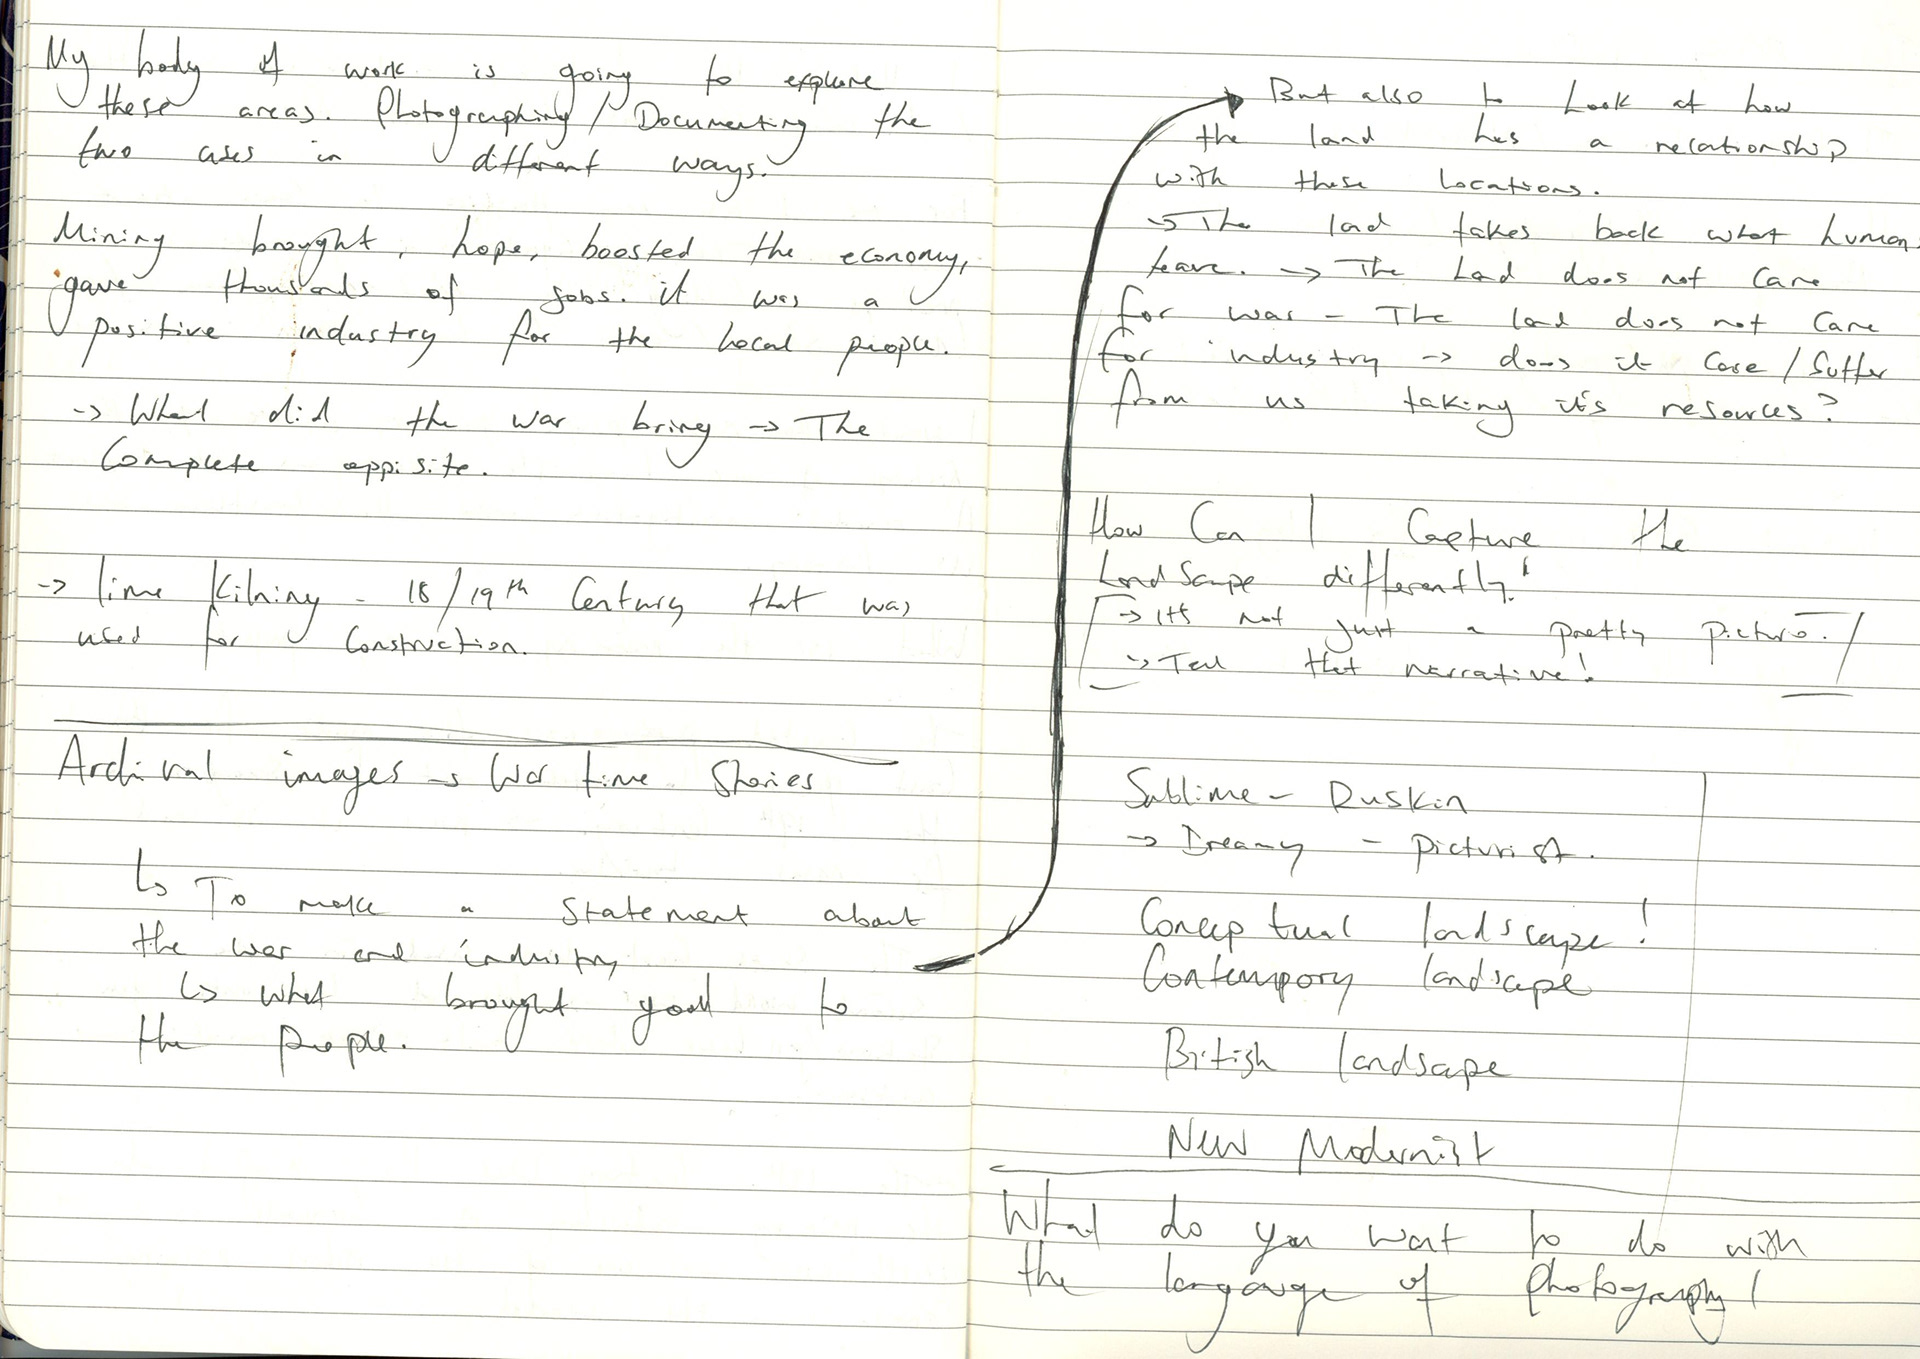 My body of work is going to explore
these areas. Photographing/Documenting the
two in different ways.
Mining brought, hope, boosted the economy,
gave thousands of jobs. it was a
positive industry for the local people.
-> What did the war bring -> The
Complete oppisite.
-> lime Kilning - 18/19th Century that was
used for construction.
Archival images -> War time Stories
↳ To make a statement about
the war and industry
↳ what brought good to
the people.
But also to look at how
the land has a relationship
with these locations.
-> The land takes back what human
leave. -> The land does not care
for war - The land does not care
for industry -> does it care/suffer
from us taking it's resources?
How Can I Capture the
LandScape differently!
-> It's not just a pretty picture.
-> Tell that narrative!
Sublime - Ruskin
-> Dreamy - picturist.
Conceptual landscape!
Contempory landscape
British landscape
New Modernist
What do you want to do with
the langauge of photography!